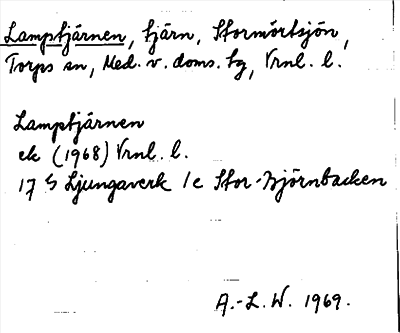 Lamptjärnen, tjärn, Stormörtsjön,
Torps sn, Med. v. doms. tg, Vrnl. l.
Lamptjärnen
ek (1968) Vrnl. l.
17 S Ljungaverk 1c Stor-Björnbacken
A.-L. W. 1969.